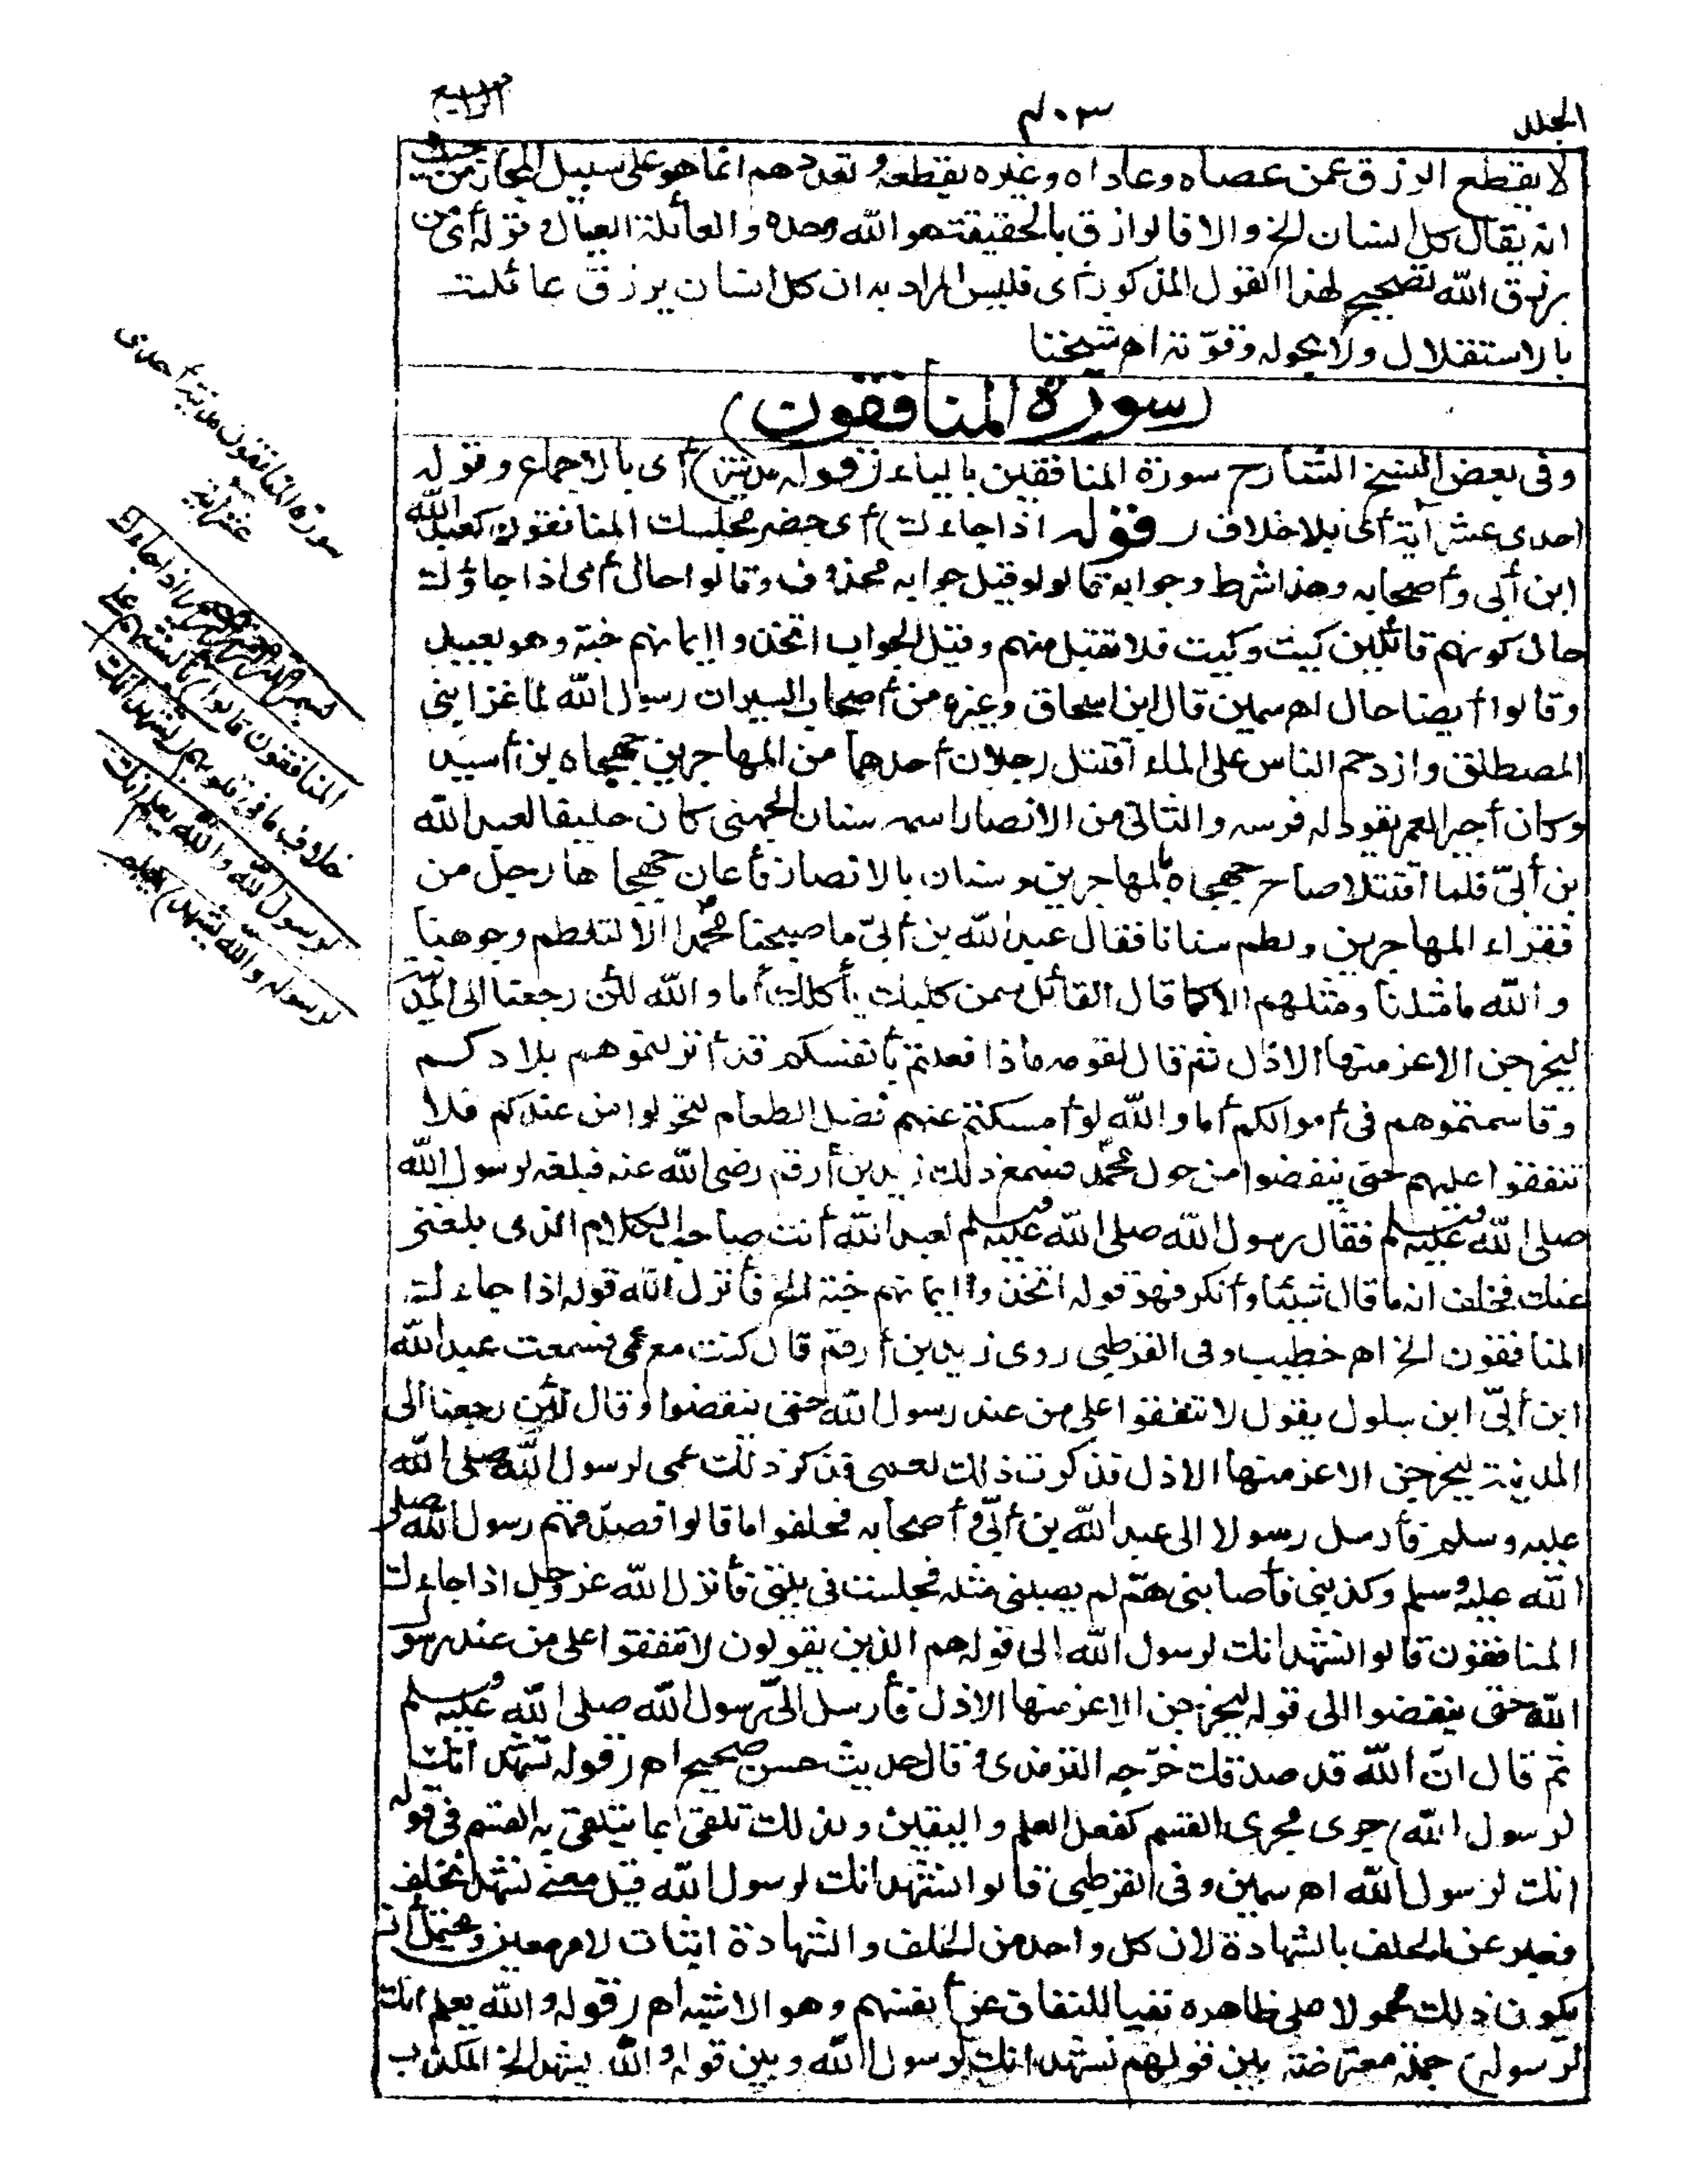 المجلد
٣٠٤
الرابع
لا يقطع الرزق عمن عصاه وعاداه وغيره يقطعه وتعددهم انما هو على سبيل المجاز من حيث
انه يقال كل انسان الخ والا فالرازق بالحقيقة هو الله وحده والعائلة العيال وقوله أى من
رزق الله تصحيح لهذا القول المذكور أى فليس المراد به ان كل انسان يرزق عائلته
بالاستقلال ولا بحوله وقوّته اه شيخنا
(سورة المنافقون)
وفى بعض نسخ الشارح سورة المنافقين بالياء (قوله مدنية) أى بالاجماع وقوله
احدى عشر آية أى بلا خلاف (قوله اذا جاءك) أى حضر مجلسك المنافقون كعبد الله
ابن أبى وأصحابه وهذا شرط وجوابه قالوا وقيل جوابه محذوف وقالوا حال أى اذا جاؤك
حال كونهم قائلين كيت وكيت فلا تقبل منهم وقيل الجواب اتخذوا ايمانهم جنة وهو بعيد
وقالوا أيضا حال اه سمين قال ابن اسحاق وغيره من أصحاب السير ان رسول الله لما غزا بنى
المصطلق وازدحم الناس على الماء اقتتل رجلان أحدهما من المهاجرين جهجاه بن أسيد
وكان أجيرا لعمر يقود له فرسه والثانى من الانصار اسمه سنان الجهنى كان حليفا لعبد الله
بن أبىّ فلما اقتتلا صاح جهجاه بالمهاجرين وسنان بالانصار فأعان جهجاها رجل من
فقراء المهاجرين ولطم سنانا فقال عبد الله بن أبىّ ما صحبنا محمدا الا لتلطم وجوهنا
والله ما مثلنا ومثلهم الا كما قال القائل سمن كلبك يأكلك أما والله لئن رجعنا الى المدينة
ليخرجن الاعز منها الاذل ثم قال لقومه ماذا فعلتم بأنفسكم قد أنزلتموهم بلادكم
وقاسمتموهم فى أموالكم أما والله لو أمسكتم عنهم فضل الطعام لتحولوا من عندكم فلا
تنفقوا عليهم حتى ينفضوا من حول محمد فسمع ذلك زيد بن أرقم رضى الله عنه فبلغه لرسول الله
صلى الله عليه وسلم فقال رسول الله صلى الله عليه وسلم لعبد الله أنت صاحب الكلام الذى بلغنى
عنك فحلف انه ما قال شيئا وأنكر فهو قوله اتخذوا ايمانهم جنة الخ فأنزل الله قوله اذا جاءك
المنافقون الخ اه خطيب وفى القرطبى روى زيد بن أرقم قال كنت مع عمى فسمعت عبد الله
ابن أبىّ ابن سلول يقول لا تنفقوا على من عند رسول الله حتى ينفضوا وقال لئن رجعنا الى
المدينة ليخرجن الاعز منها الاذل فذكرت ذلك لعمى فذكر ذلك عمى لرسول الله صلى الله
عليه وسلم فأرسل رسولا الى عبد الله بن أبىّ وأصحابه فحلفوا ما قالوا فصدّقهم رسول الله صلى
الله عليه وسلم وكذبنى فأصابنى همّ لم يصبنى مثله فجلست فى بيتى فأنزل الله عز وجل اذا جاءك
المنافقون قالوا نشهد انك لرسول الله الى قوله هم الذين يقولون لا تنفقوا على من عند رسول
الله حتى ينفضوا الى قوله ليخرجن الاعز منها الاذل فأرسل الىّ رسول الله صلى الله عليه وسلم
ثم قال انّ الله قد صدقك خرّجه الترمذى وقال حديث حسن صحيح اه (قوله نشهد انك
لرسول الله) جرى مجرى القسم كفعل العلم واليقين ولذلك تلقى بما يتلقى به القسم فى قوله
انك لرسول الله اه سمين وفى القرطبى قالوا نشهد انك لرسول الله قيل معنى نشهد نحلف
فعبر عن الحلف بالشهادة لان كل واحد من الحلف والشهادة اثبات لامر معين ويحتمل أنه
يكون ذلك محمولا على ظاهره نفيا للنفاق عن أنفسهم وهو الاشبه اه (قوله والله يعلم انك
لرسوله) جملة معترضة بين قولهم نشهد انك لرسول الله وبين قوله والله يشهد الخ المكذب
سورة المنافقون مدنية احدى
عشر آية
بسم الله الرحمن الرحيم (اذا جاءك
المنافقون قالوا) بألسنتهم على
خلاف ما فى قلوبهم (نشهد انك
لرسول الله والله يعلم انك
لرسوله والله يشهد) يعلم